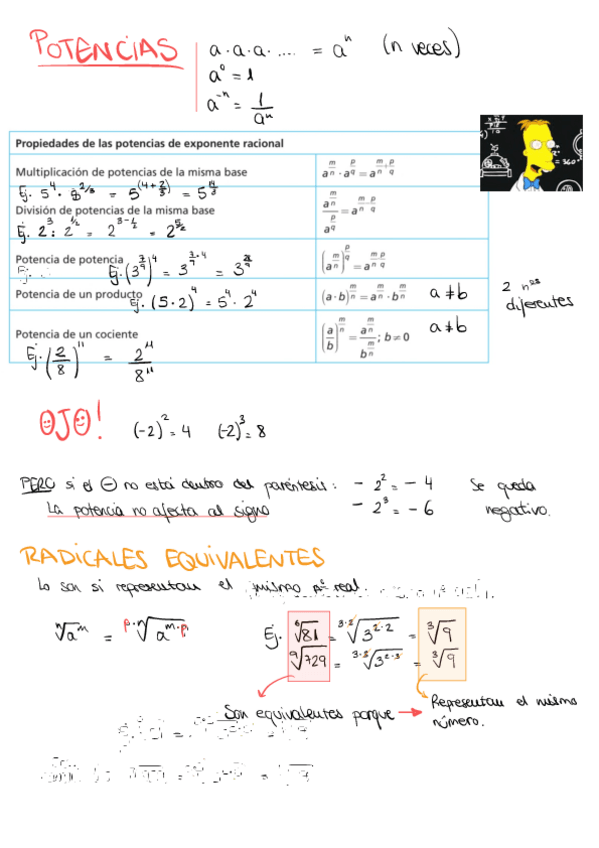 POTENCIAS
a·a·a·.... = aⁿ (n veces)
a⁰ = 1
a⁻ⁿ = 1/aⁿ
Propiedades de las potencias de exponente racional
Multiplicación de potencias de la misma base a^(m/n) · a^(p/q) = a^(m/n + p/q)
División de potencias de la misma base a^(m/n) / a^(p/q) = a^(m/n - p/q)
Ej. 2³ : 2^(1/2) = 2^(3-1/2) = 2^(5/2)
Potencia de potencia (a^(m/n))^(p/q) = a^(m/n · p/q)
Potencia de un producto (a·b)^(m/n) = a^(m/n) · b^(m/n) a ≠ b
Ej. (5·2)⁴ = 5⁴ · 2⁴
2 nos
diferentes
Potencia de un cociente (a/b)^(m/n) = a^(m/n) / b^(m/n) ; b ≠ 0 a ≠ b
Ej. (2/8)¹¹ = 2¹¹/8¹¹
OJO!
(-2)² = 4 (-2)³ = 8
PERO si el ⊖ no está dentro del paréntesis: - 2² = - 4 Se queda
La potencia no afecta al signo - 2³ = - 6 negativo.
RADICALES EQUIVALENTES
Lo son si representan el mismo nº real.
ⁿ√aᵐ = ᵖ·ⁿ√aᵐ·ᵖ
Ej. ⁶√81 = ³·²√3²·² = ³√9
⁹√729 = ³·³√3²·³ = ³√9
Son equivalentes porque → Representan el mismo
número.